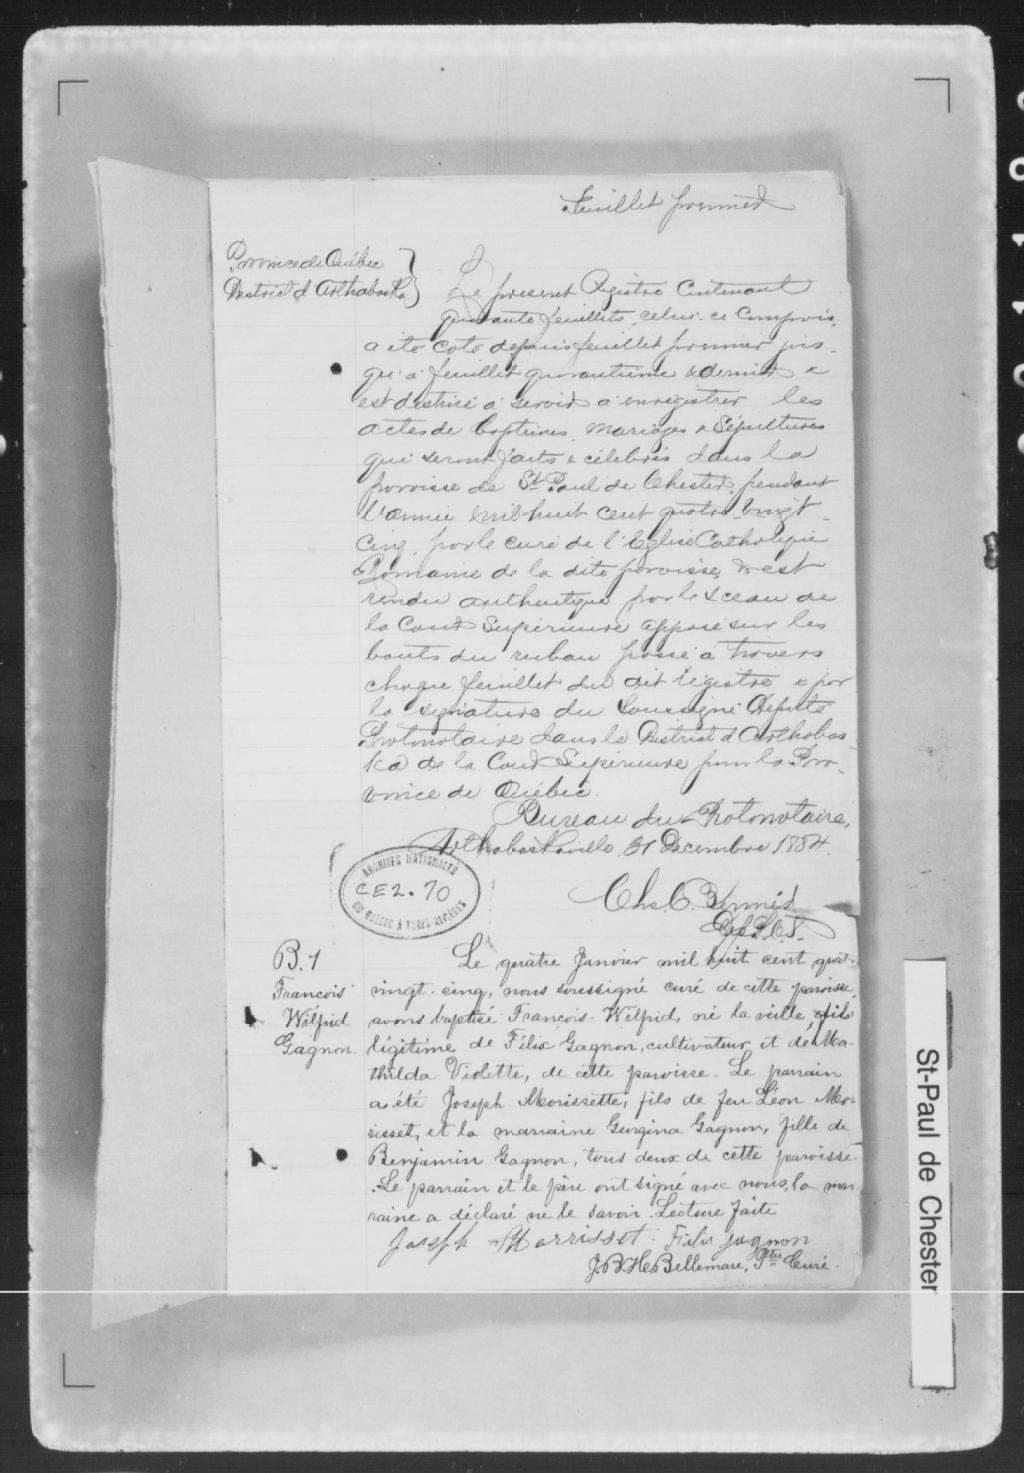 Feuillet premier
Province de Québec
District d'Arthabaska
Le present Régistre Contenant
quarante feuillets, celui-ci Compris,
a été coté depuis feuillet premier jus-
qu'à feuillet quarantieme & dernier &
est destiné à servir à enregistrer les
actes de Baptêmes, Mariages & Sépultures
qui seront faits & célébrés dans la
paroisse de St Paul de Chester, pendant
l'année mil huit cent quatre-vingt-
cinq, par le curé de l'Eglise Catholique
Romaine de la dite paroisse, & est
rendu authentique par le Sceau de
la Cour Supérieure apposé sur les
bouts du ruban passé à travers
chaque feuillet du dit régistre & par
la signature du Soussigné Député
Protonotaire dans le District d'Arthabas-
ka de la Cour Supérieure pour la Pro-
vince de Québec.
Bureau du Protonotaire,
Arthabaskaville, 31 Decembre 1884.
ARCHIVES NATIONALES
CE2-70
DU QUÉBEC À TROIS-RIVIÈRES
Chs. C.
Dép. P.C.S.
B. 1
François
Wilfrid
Gagnon.
Le quatre Janvier mil huit cent quatre-
vingt-cinq, nous soussigné curé de cette paroisse,
avons baptisé François-Wilfrid, né la veille, fils
légitime de Félix Gagnon, cultivateur et de Ma-
thilda Violette, de cette paroisse. Le parrain
a été Joseph Morissette, fils de feu Léon Mo-
risset, et la marraine Georgina Gagnon, fille de
Benjamin Gagnon, tous deux de cette paroisse.
Le parrain et le père ont signé avec nous, la mar-
raine a déclaré ne le savoir. Lecture faite
Joseph Morrisset. Félix gagnon
J.B.H. Bellemare, Ptre Curé.
St-Paul de Chester